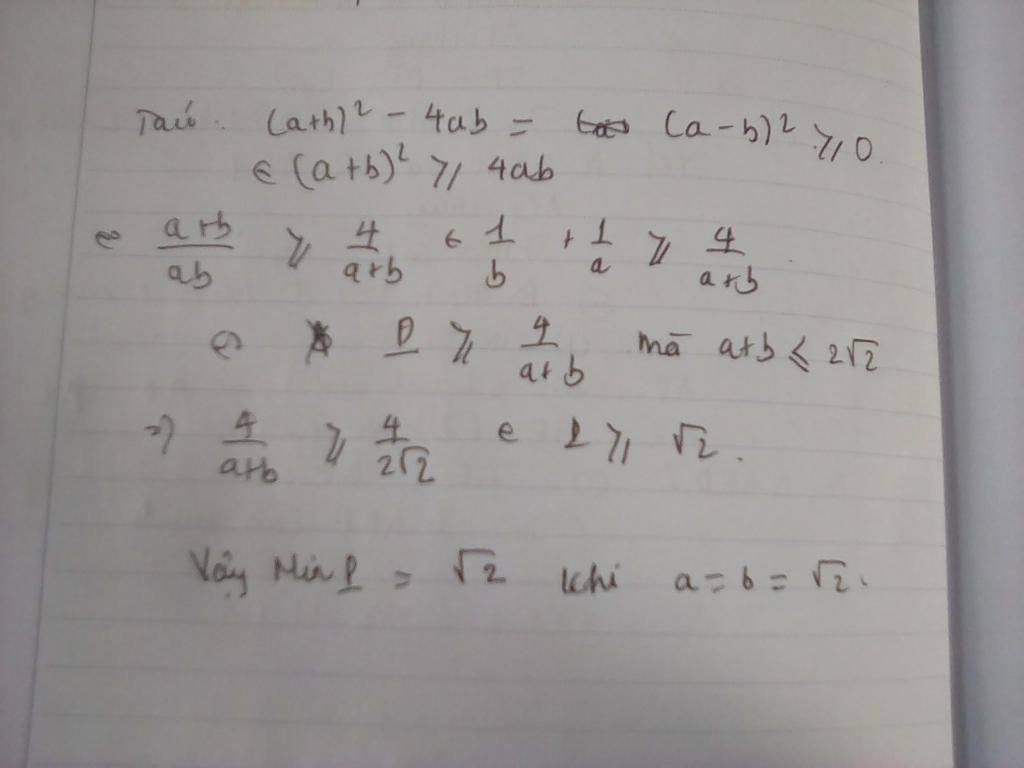 Ta có: (a+b)² - 4ab = (a-b)² ⩾ 0.
⇔ (a+b)² ⩾ 4ab
⇔ \frac{a+b}{ab} ⩾ \frac{4}{a+b} ⇔ \frac{1}{b} + \frac{1}{a} ⩾ \frac{4}{a+b}.
⇔ P ⩾ \frac{4}{a+b} mà a+b ⩽ 2√2
⇒ \frac{4}{a+b} ⩾ \frac{4}{2√2} ⇔ P ⩾ √2.
Vậy Min P = √2 khi a = b = √2.